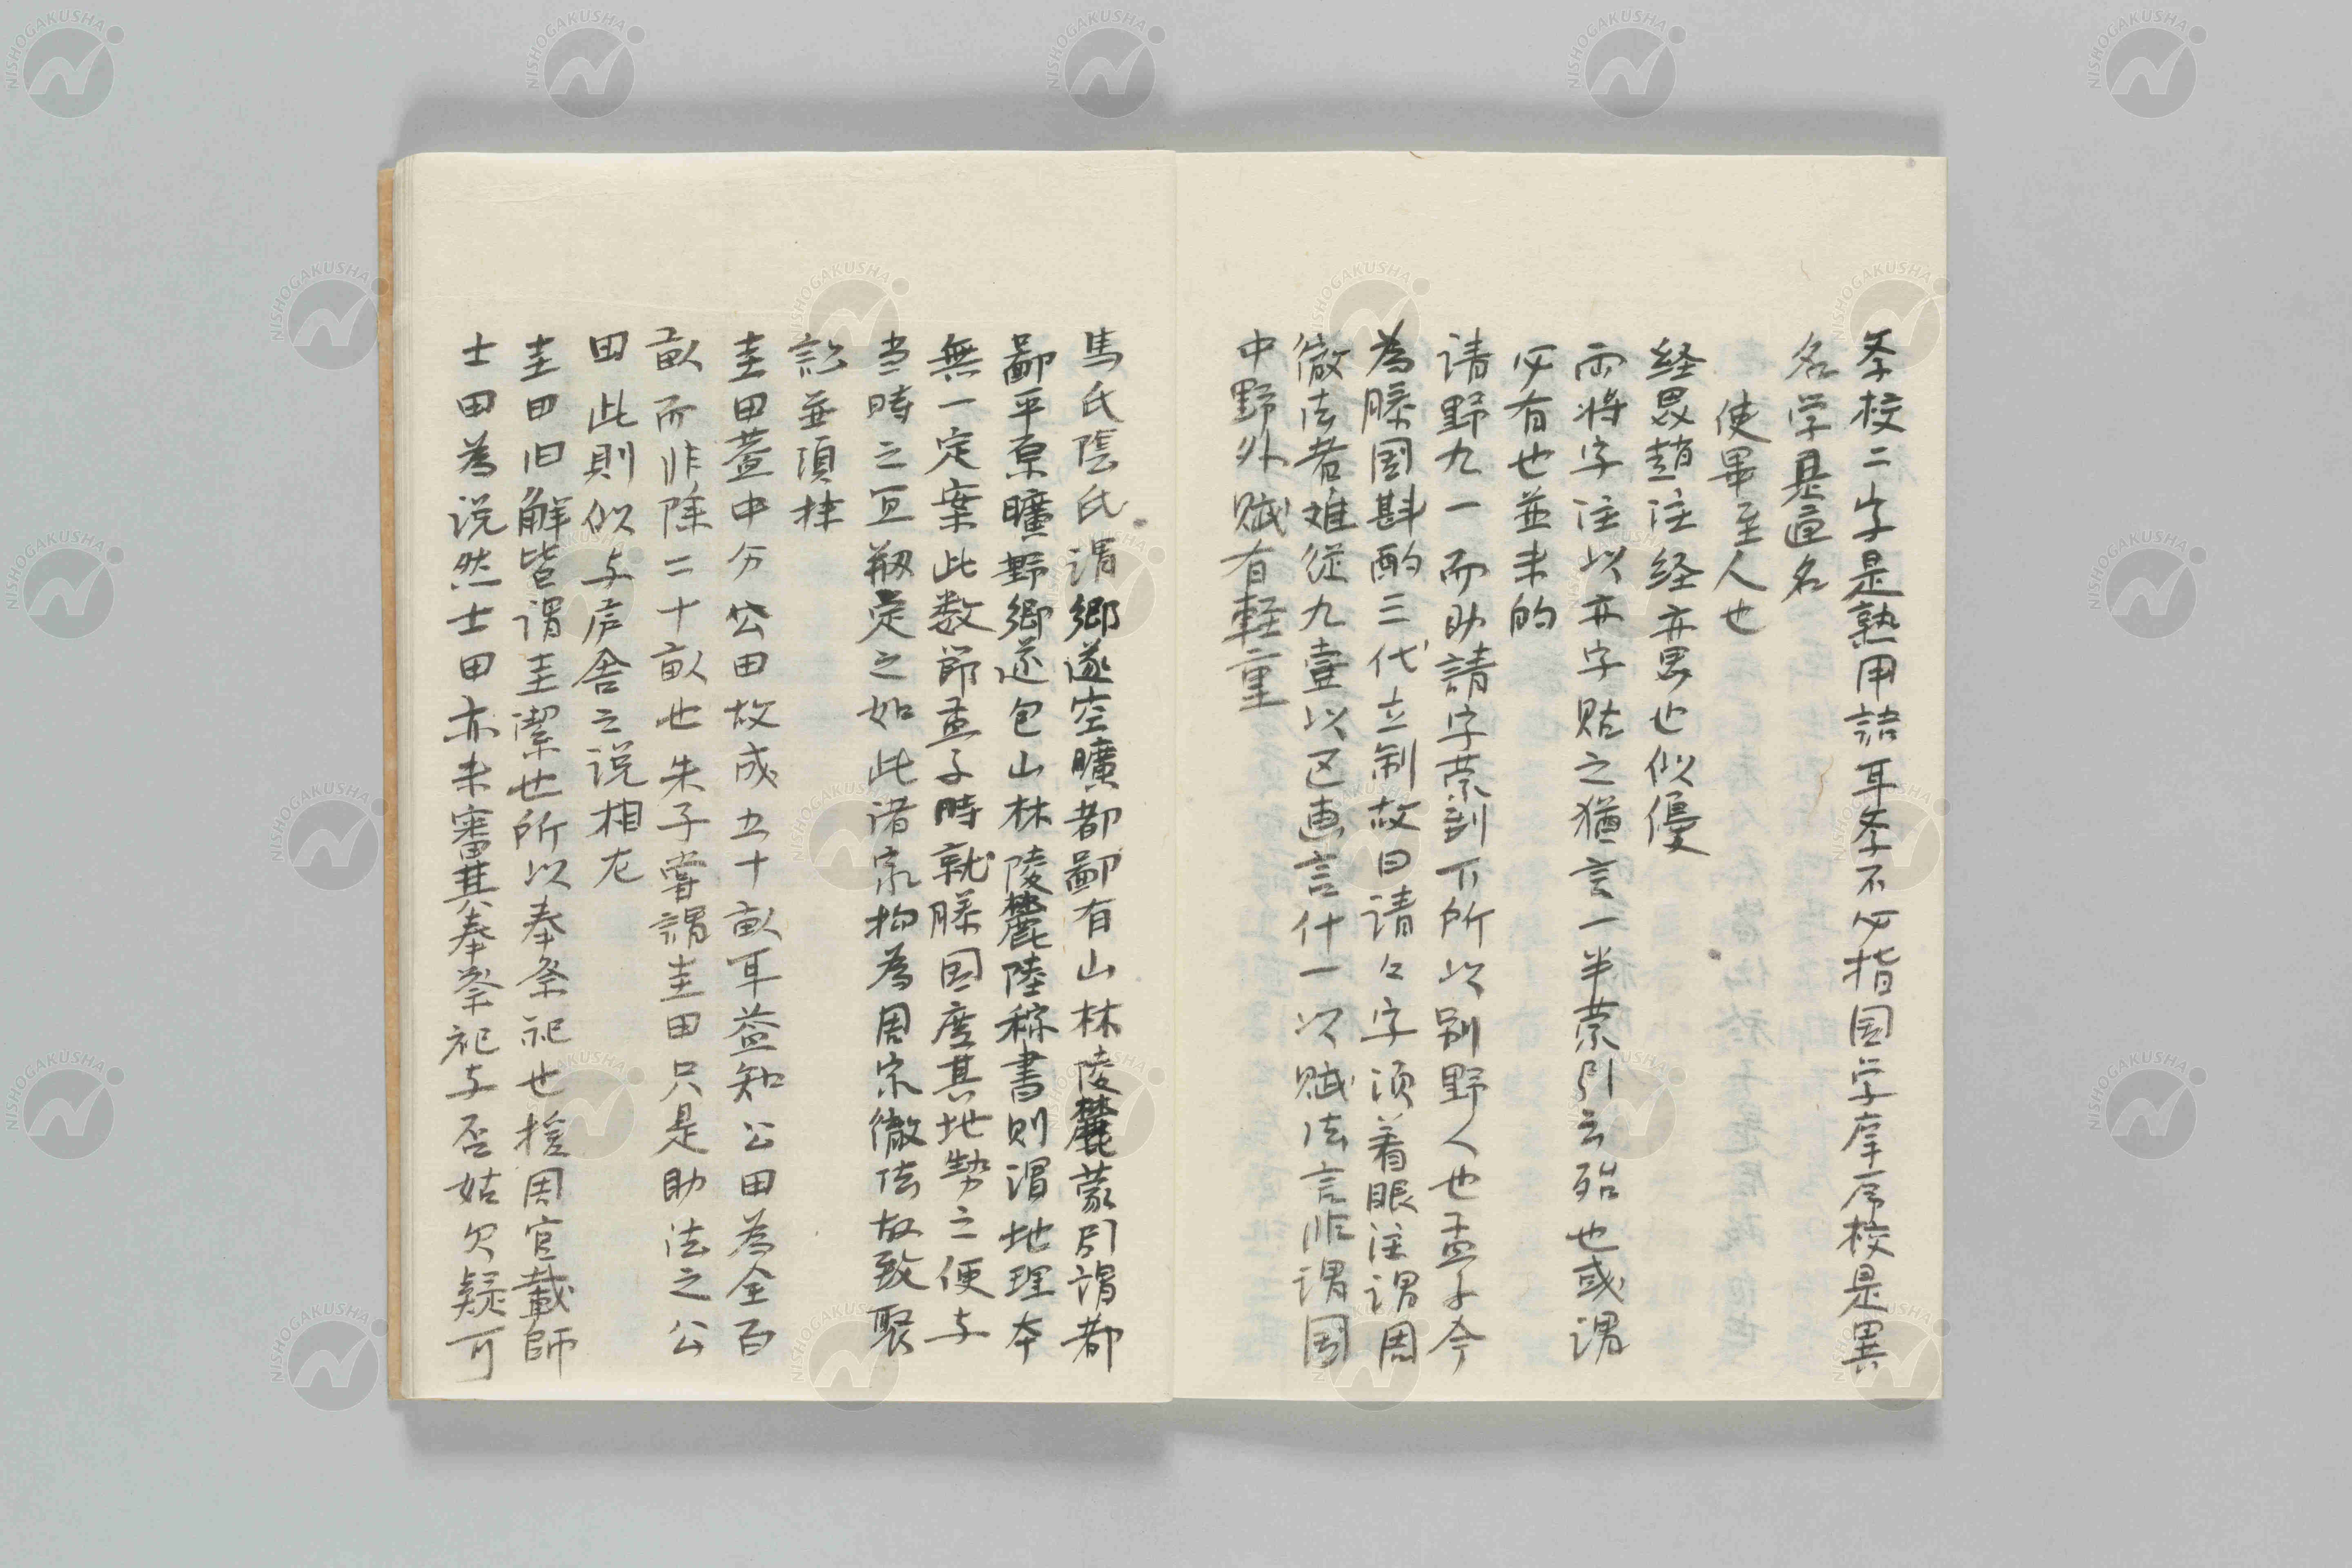 孝校二字是熟用語耳孝不必指国学庠序校是異
名学是通名
使畢至人也
経畧趙注経亦畧也似優
而将字注以亦字貼之猶言一半蒙引云殆也或謂
必有也並未的
请野九一而助請字蒙訓下所以別野人也孟子今
為滕国斟酌三代立制故曰请々字须着眼注謂周
徹法者雖從九壹以区画言什一以赋法言非谓国
中野外赋有軽重
馬氏陰氏谓鄉遂空曠都鄙有山林陵麓蒙引谓都
鄙平原曠野鄉遂包山林陵麓陸稼書則谓地理本
無一定案此数節孟子時就滕国度其地勢之便与
当時之宜剏定之如此诸家拘為周家徹法故致聚
訟並須抹
圭田蓋中分公田故成五十畝耳益知公田為全百
畝而非除二十畝也朱子嘗謂圭田只是助法之公
田此則似与庐舍之说相左
圭田旧解皆谓圭潔也所以奉祭祀也按周官載師
士田為说然士田亦未審其奉祭祀与否姑欠疑可